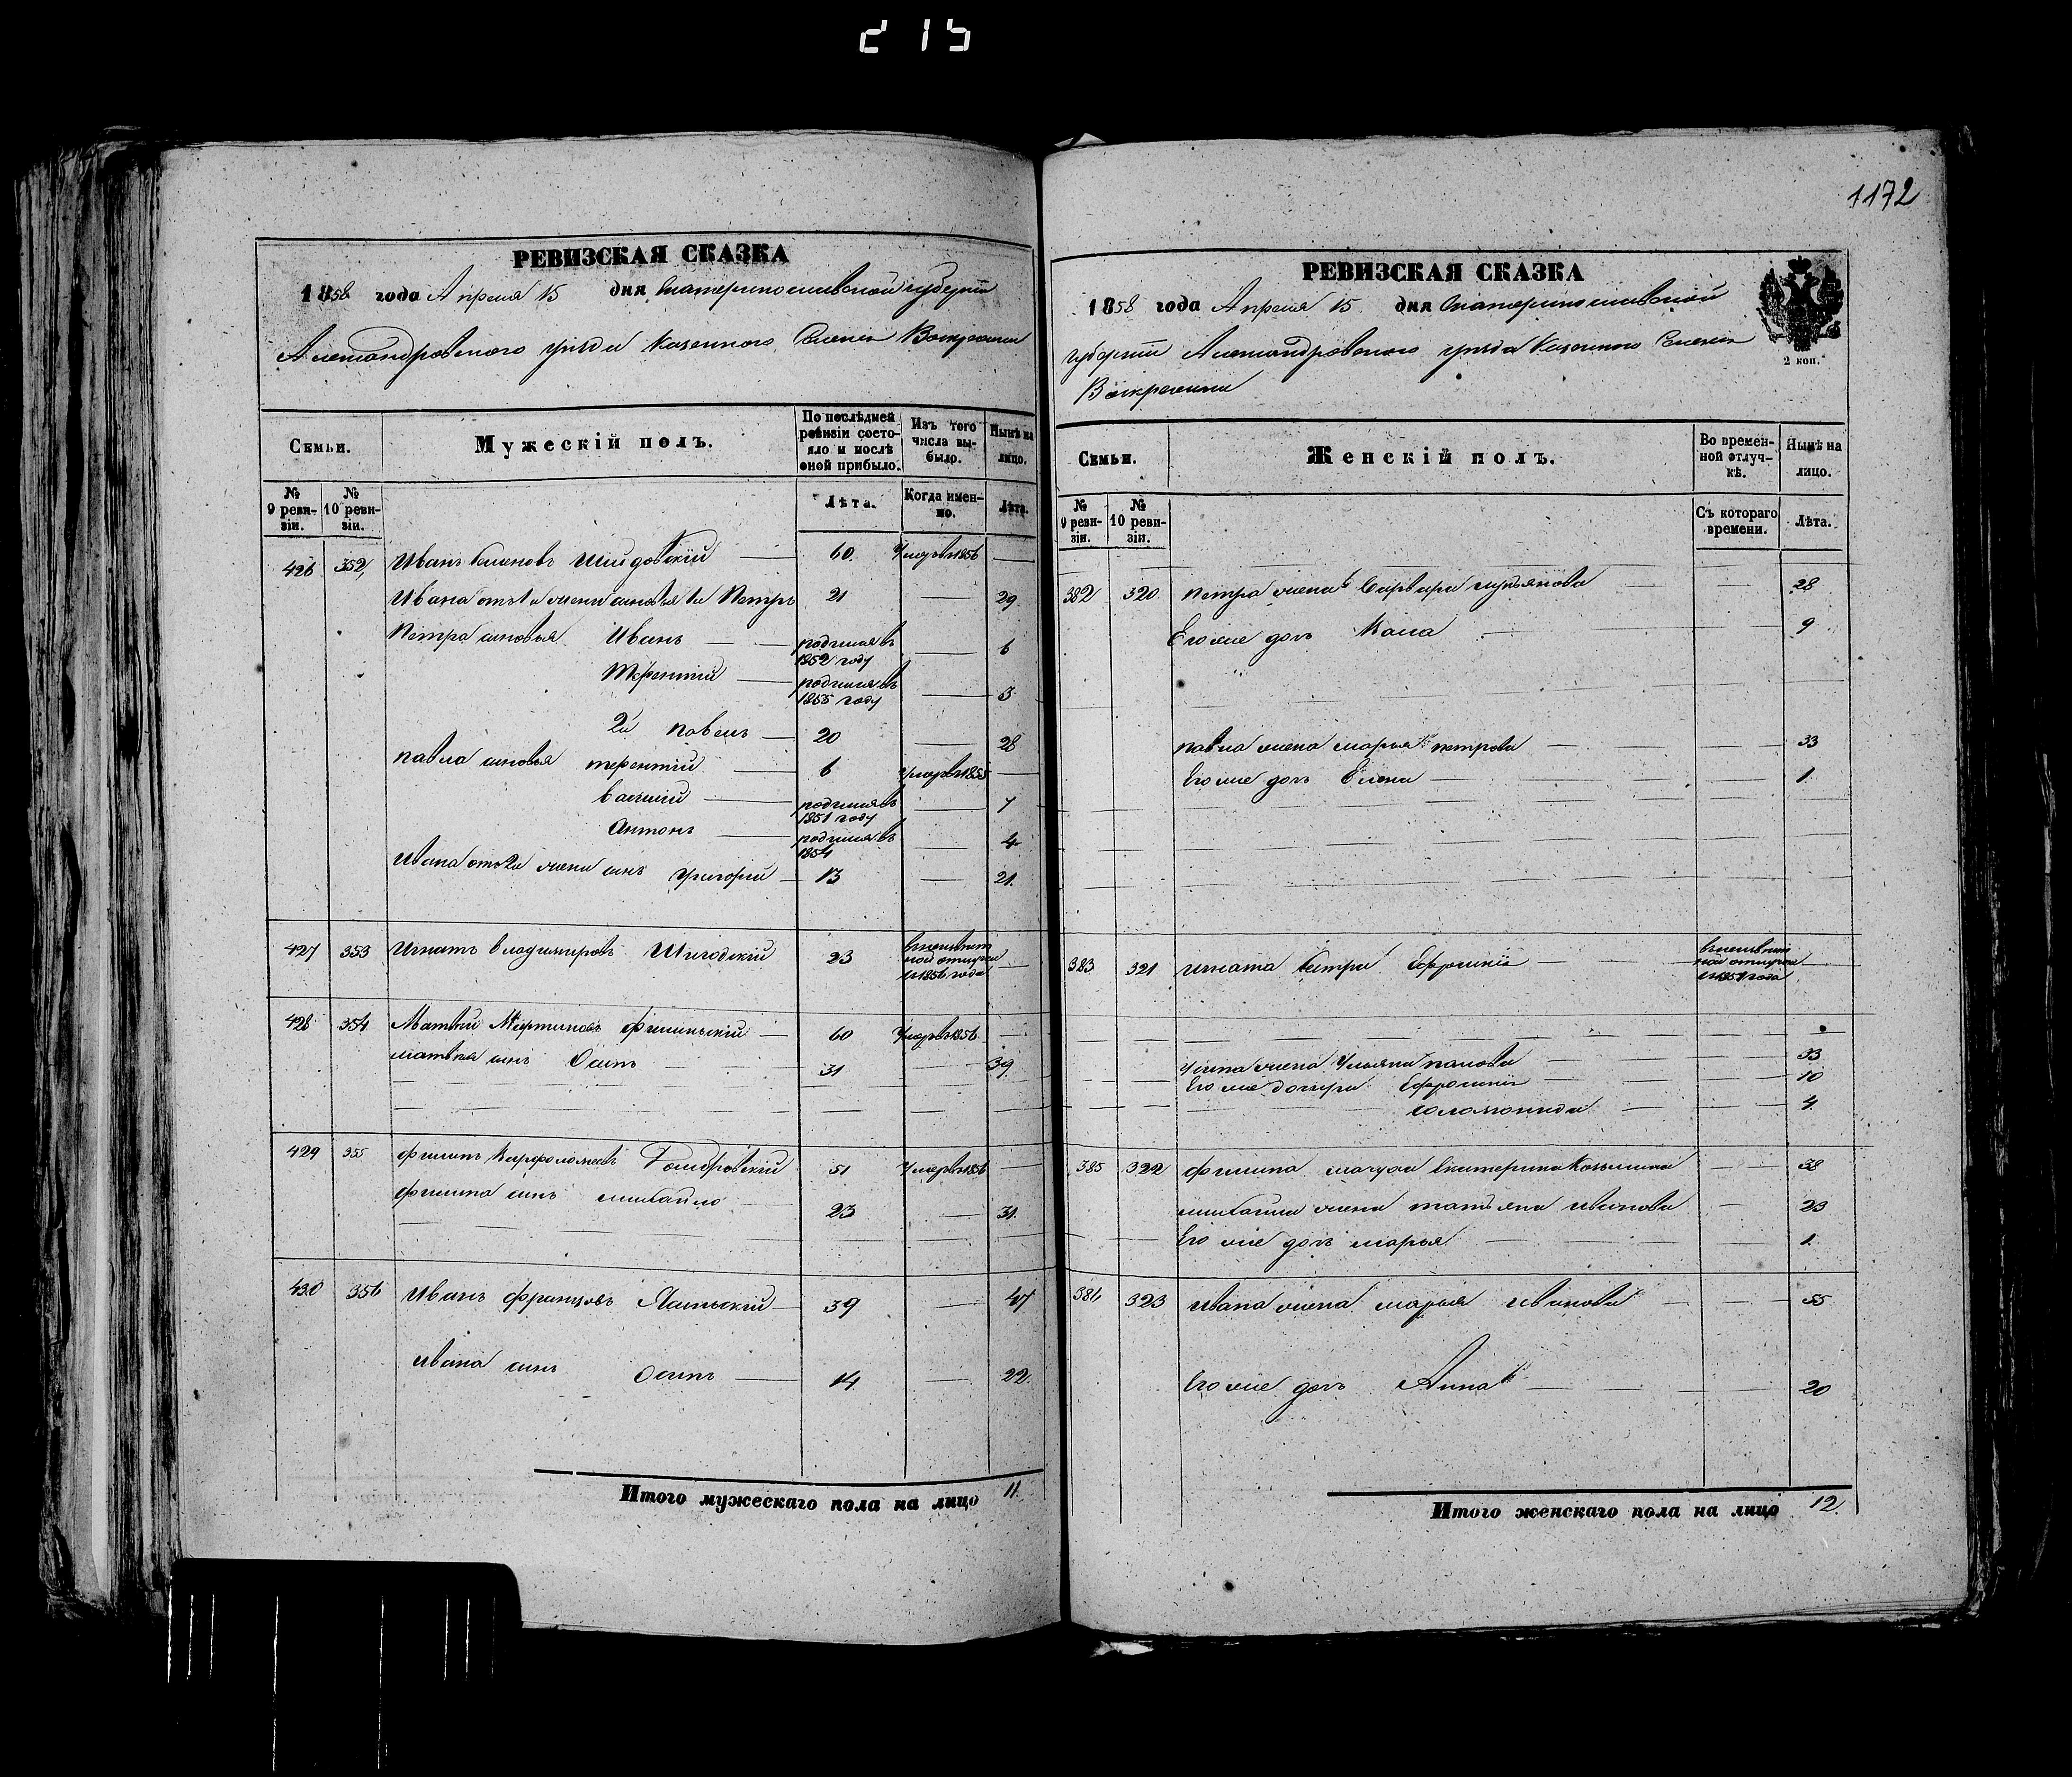 215
РЕВИЗСКАЯ СКАЗКА
1858 года Апреля 15 дня Екатеринославской губернiи
Александровского уѣзда Казенного Селенiя Воскресенки
Семьи.
Мужескiй полъ.
По послѣдней ревизiи состояло и послѣ оной прибыло.
Изъ того числа выбыло.
Нынѣ на лицо.
№ 9 ревизiи.
№ 10 ревизiи.
Лѣта.
Когда именно.
Лѣта.
426 352 Иванъ Семеновъ 60 Умеръ в 1856 —
Ивана отъ 1й жены сыновья 1й Петръ 21 — 29
Петра сыновья Иванъ — родился въ 1852 году — 6
Терентiй — родился въ 1855 году — 3
2й Павелъ — 20 — 28
Павла сыновья терентiй — 6 Умеръ в 1855 —
Василiй — родился въ 1851 году — 7
Антонъ — родился въ 1854 — 4
Ивана отъ 2й жены сынъ Григорiй — 13 — 21.
427 353 Игнатъ Владимiровъ 23 въ неизвѣстной отлучке с 1856 года —
428 354 Матвѣй Мартиновъ 60 Умеръ в 1856 —
Матвѣя сынъ Осипъ 31 — 39
429 355 Филипъ Варфоломеевъ 51 Умеръ в 1856 —
Филипа сынъ михайло 23 — 31.
430 356 Иванъ Францовъ 39 — 47
Ивана сынъ Осипъ — 14 — 22.
Итого мужескаго пола на лицо 11.
1172
РЕВИЗСКАЯ СКАЗКА
1858 года Апреля 15 дня Екатеринославской
губернiи Александровского уѣзда Казенного Селенiя
Воскресенки
2 коп.
Семьи.
Женскiй полъ.
Во временной отлучкѣ.
Нынѣ на лицо.
№ 9 ревизiи.
№ 10 ревизiи.
Съ котораго времени.
Лѣта.
382 320 Петра жена Варвара лукьянова — 28
Его же дочь — 9
Павла жена марья петрова — 33
Его же дочь Елена — 1.
383 321 Игната сестра Ефросинiя въ неизвѣстной отлучке
Осипа жена Ульяна — 33
Его же дочери Ефросинiя — 10
соломонида — 4
385 322 Филипа Екатерина — 38
михайлы жена татьяна иванова — 23
Его же дочь марья — 1.
386 323 Ивана жена марья иванова — 55
Его же дочь Анна — 20
Итого женскаго пола на лицо 12.